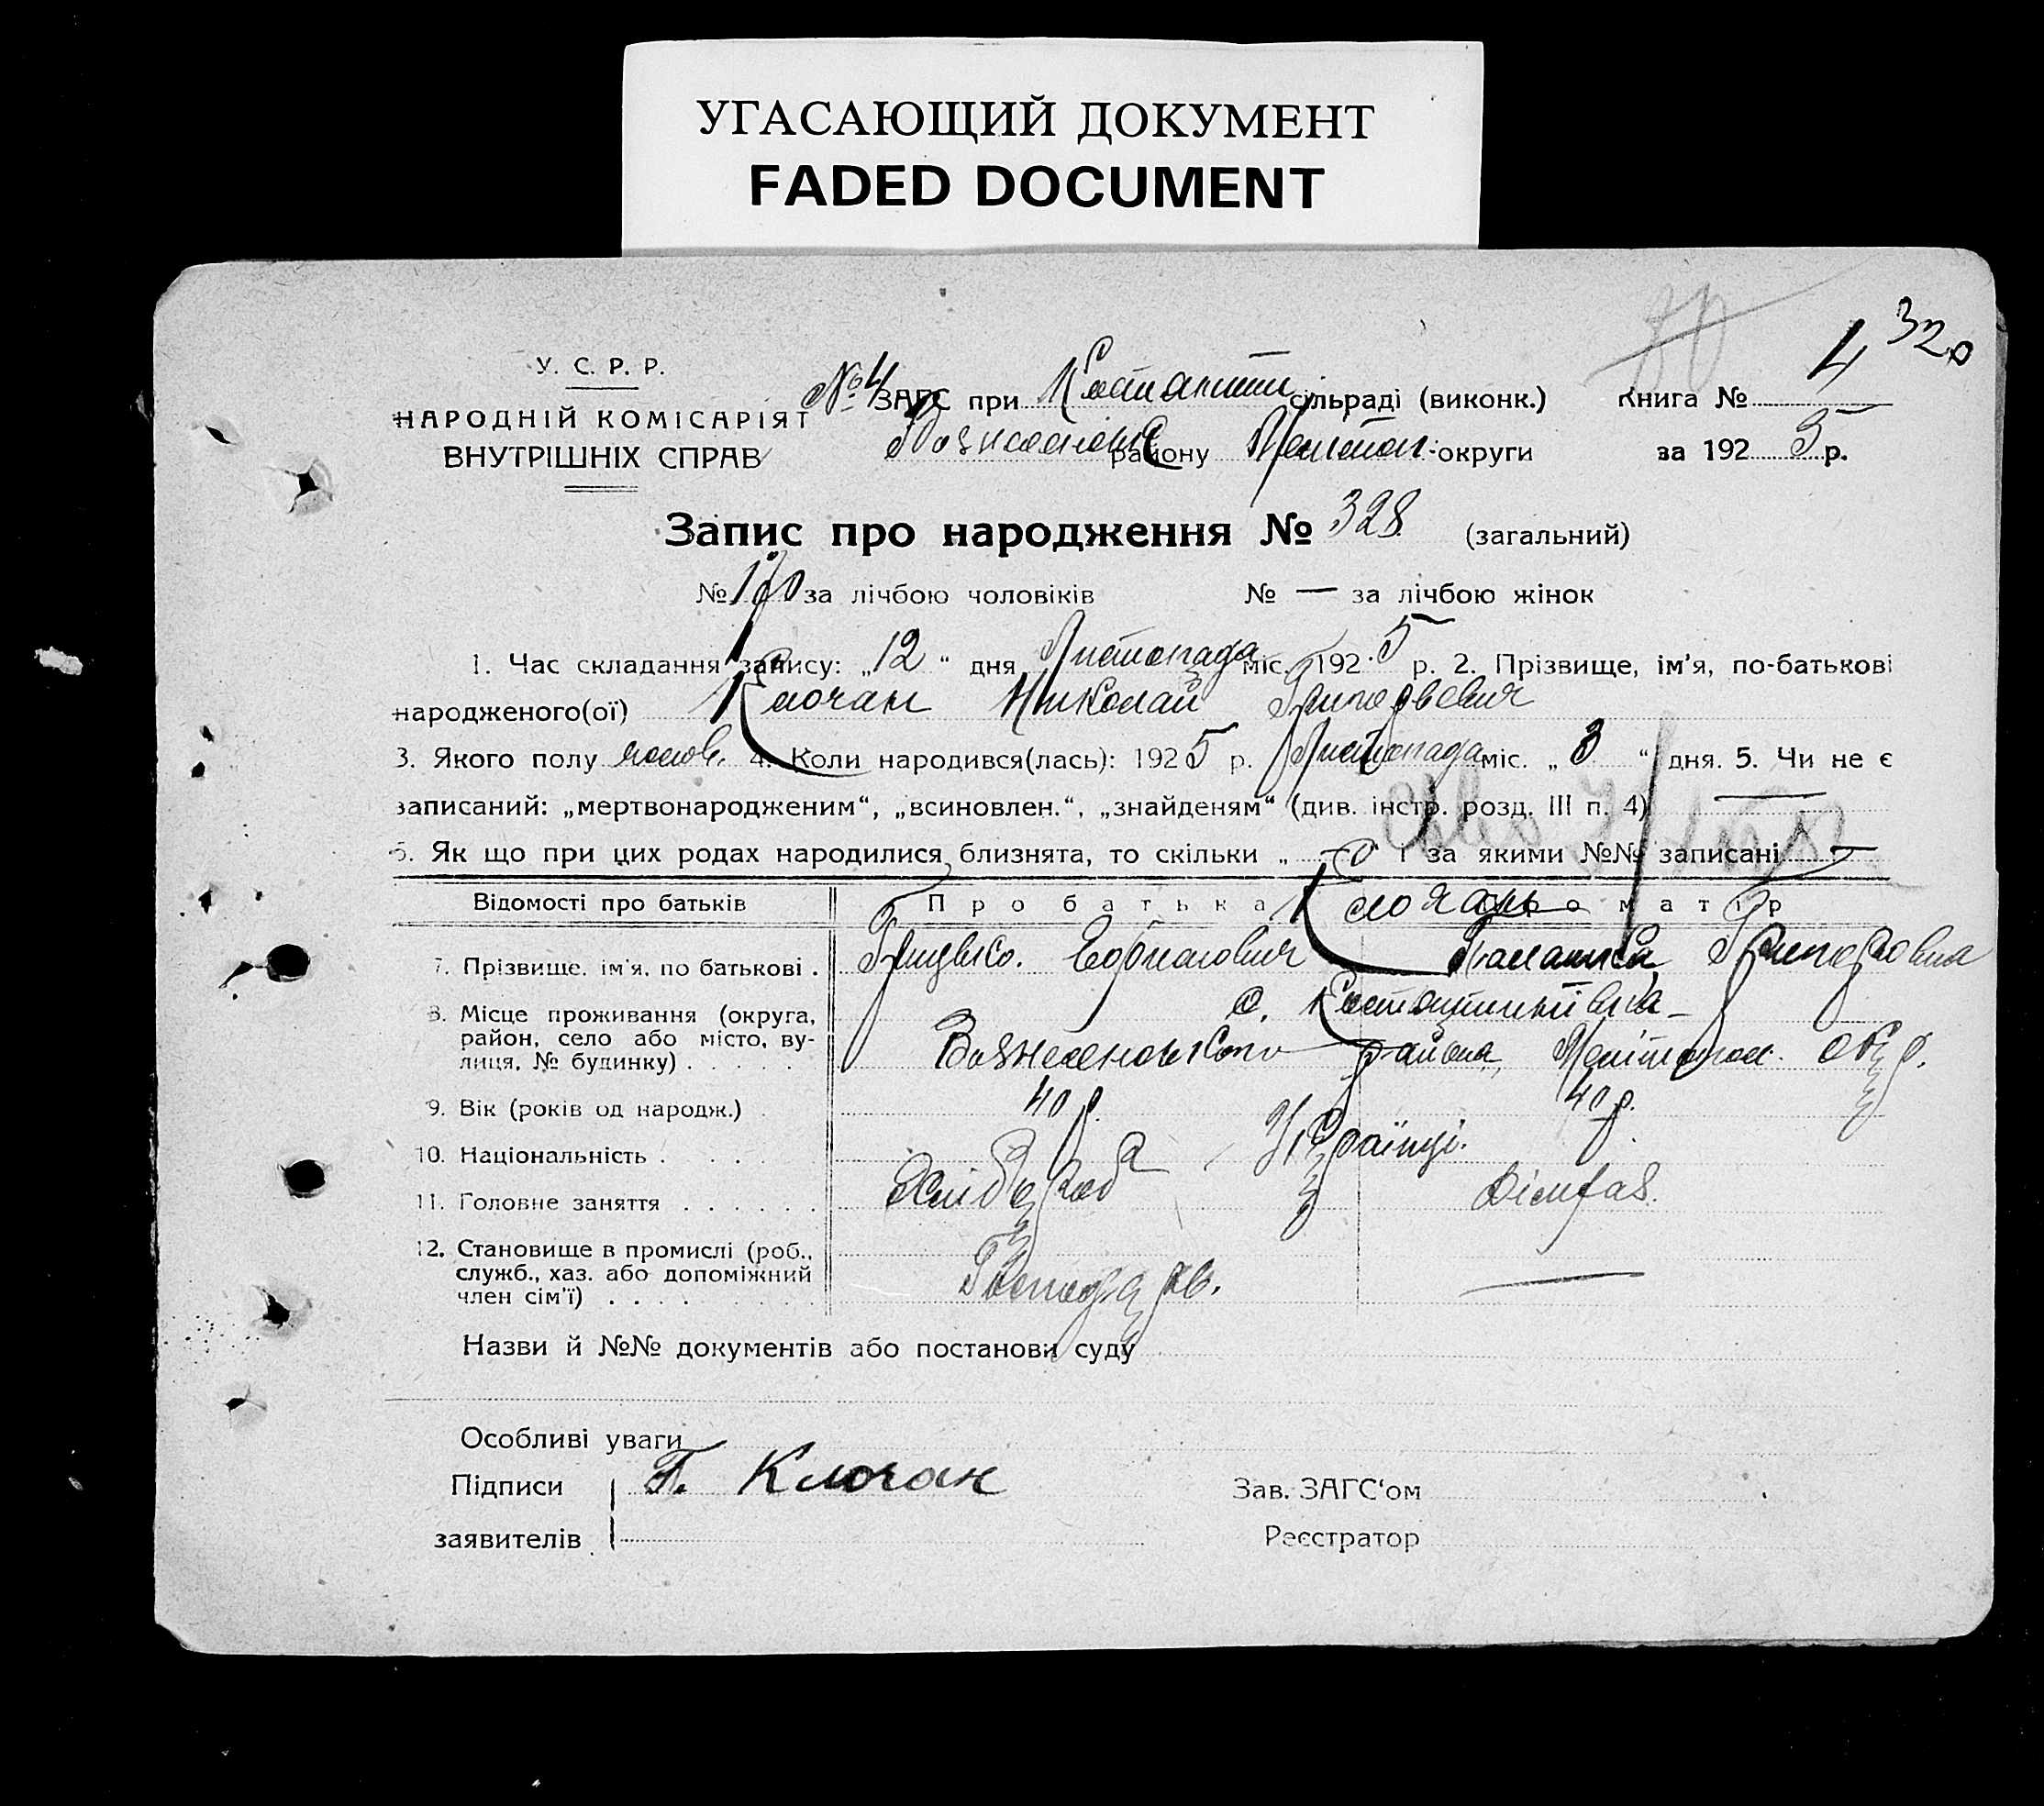 УГАСАЮЩИЙ ДОКУМЕНТ
FADED DOCUMENT
320
У. С. Р. Р.
НАРОДНІЙ КОМІСАРІЯТ
ВНУТРІШНІХ СПРАВ
№ 4 ЗАГС при Костантин сільраді (виконк.) Книга № 4
району округи за 1925 р.
Запис про народження № 328 (загальний)
№ за лічбою чоловіків № — за лічбою жінок
1. Час складання запису: „12“ дня Листопада міс. 1925 р. 2. Прізвище, ім'я, по-батькові
народженого(ої) Клочан Николай
3. Якого полу чолов. 4. Коли народився(лась): 1925 р. Листопада міс. „3“ дня. 5. Чи не є
записаний: „мертвонародженим“, „всиновлен.“, „знайденям“ (див. інстр. розд. III п. 4) —
6. Як що при цих родах народилися близнята, то скільки „ “ і за якими №№ записані —
Відомості про батьків Про батька Про матір
Клочан
7. Прізвище, ім'я, по батькові . Грицько Паланика
с. Костянтинівка
8. Місце проживання (округа,
район, село або місто, ву-
лиця, № будинку) . . . . . Вознесенського района, Мелітопол. окр.
9. Вік (років од народж.) . 40 р. 40 р.
10. Національність . . . . Українці.
11. Головне заняття . . . . . . Хлібороб
12. Становище в промислі (роб.,
служб., хаз. або допоміжний
член сім'ї) . . . . —
Назви й №№ документів або постанови суду
Особливі уваги
Підписи Г. Клочан Зав. ЗАГС'ом
заявителів Реєстратор